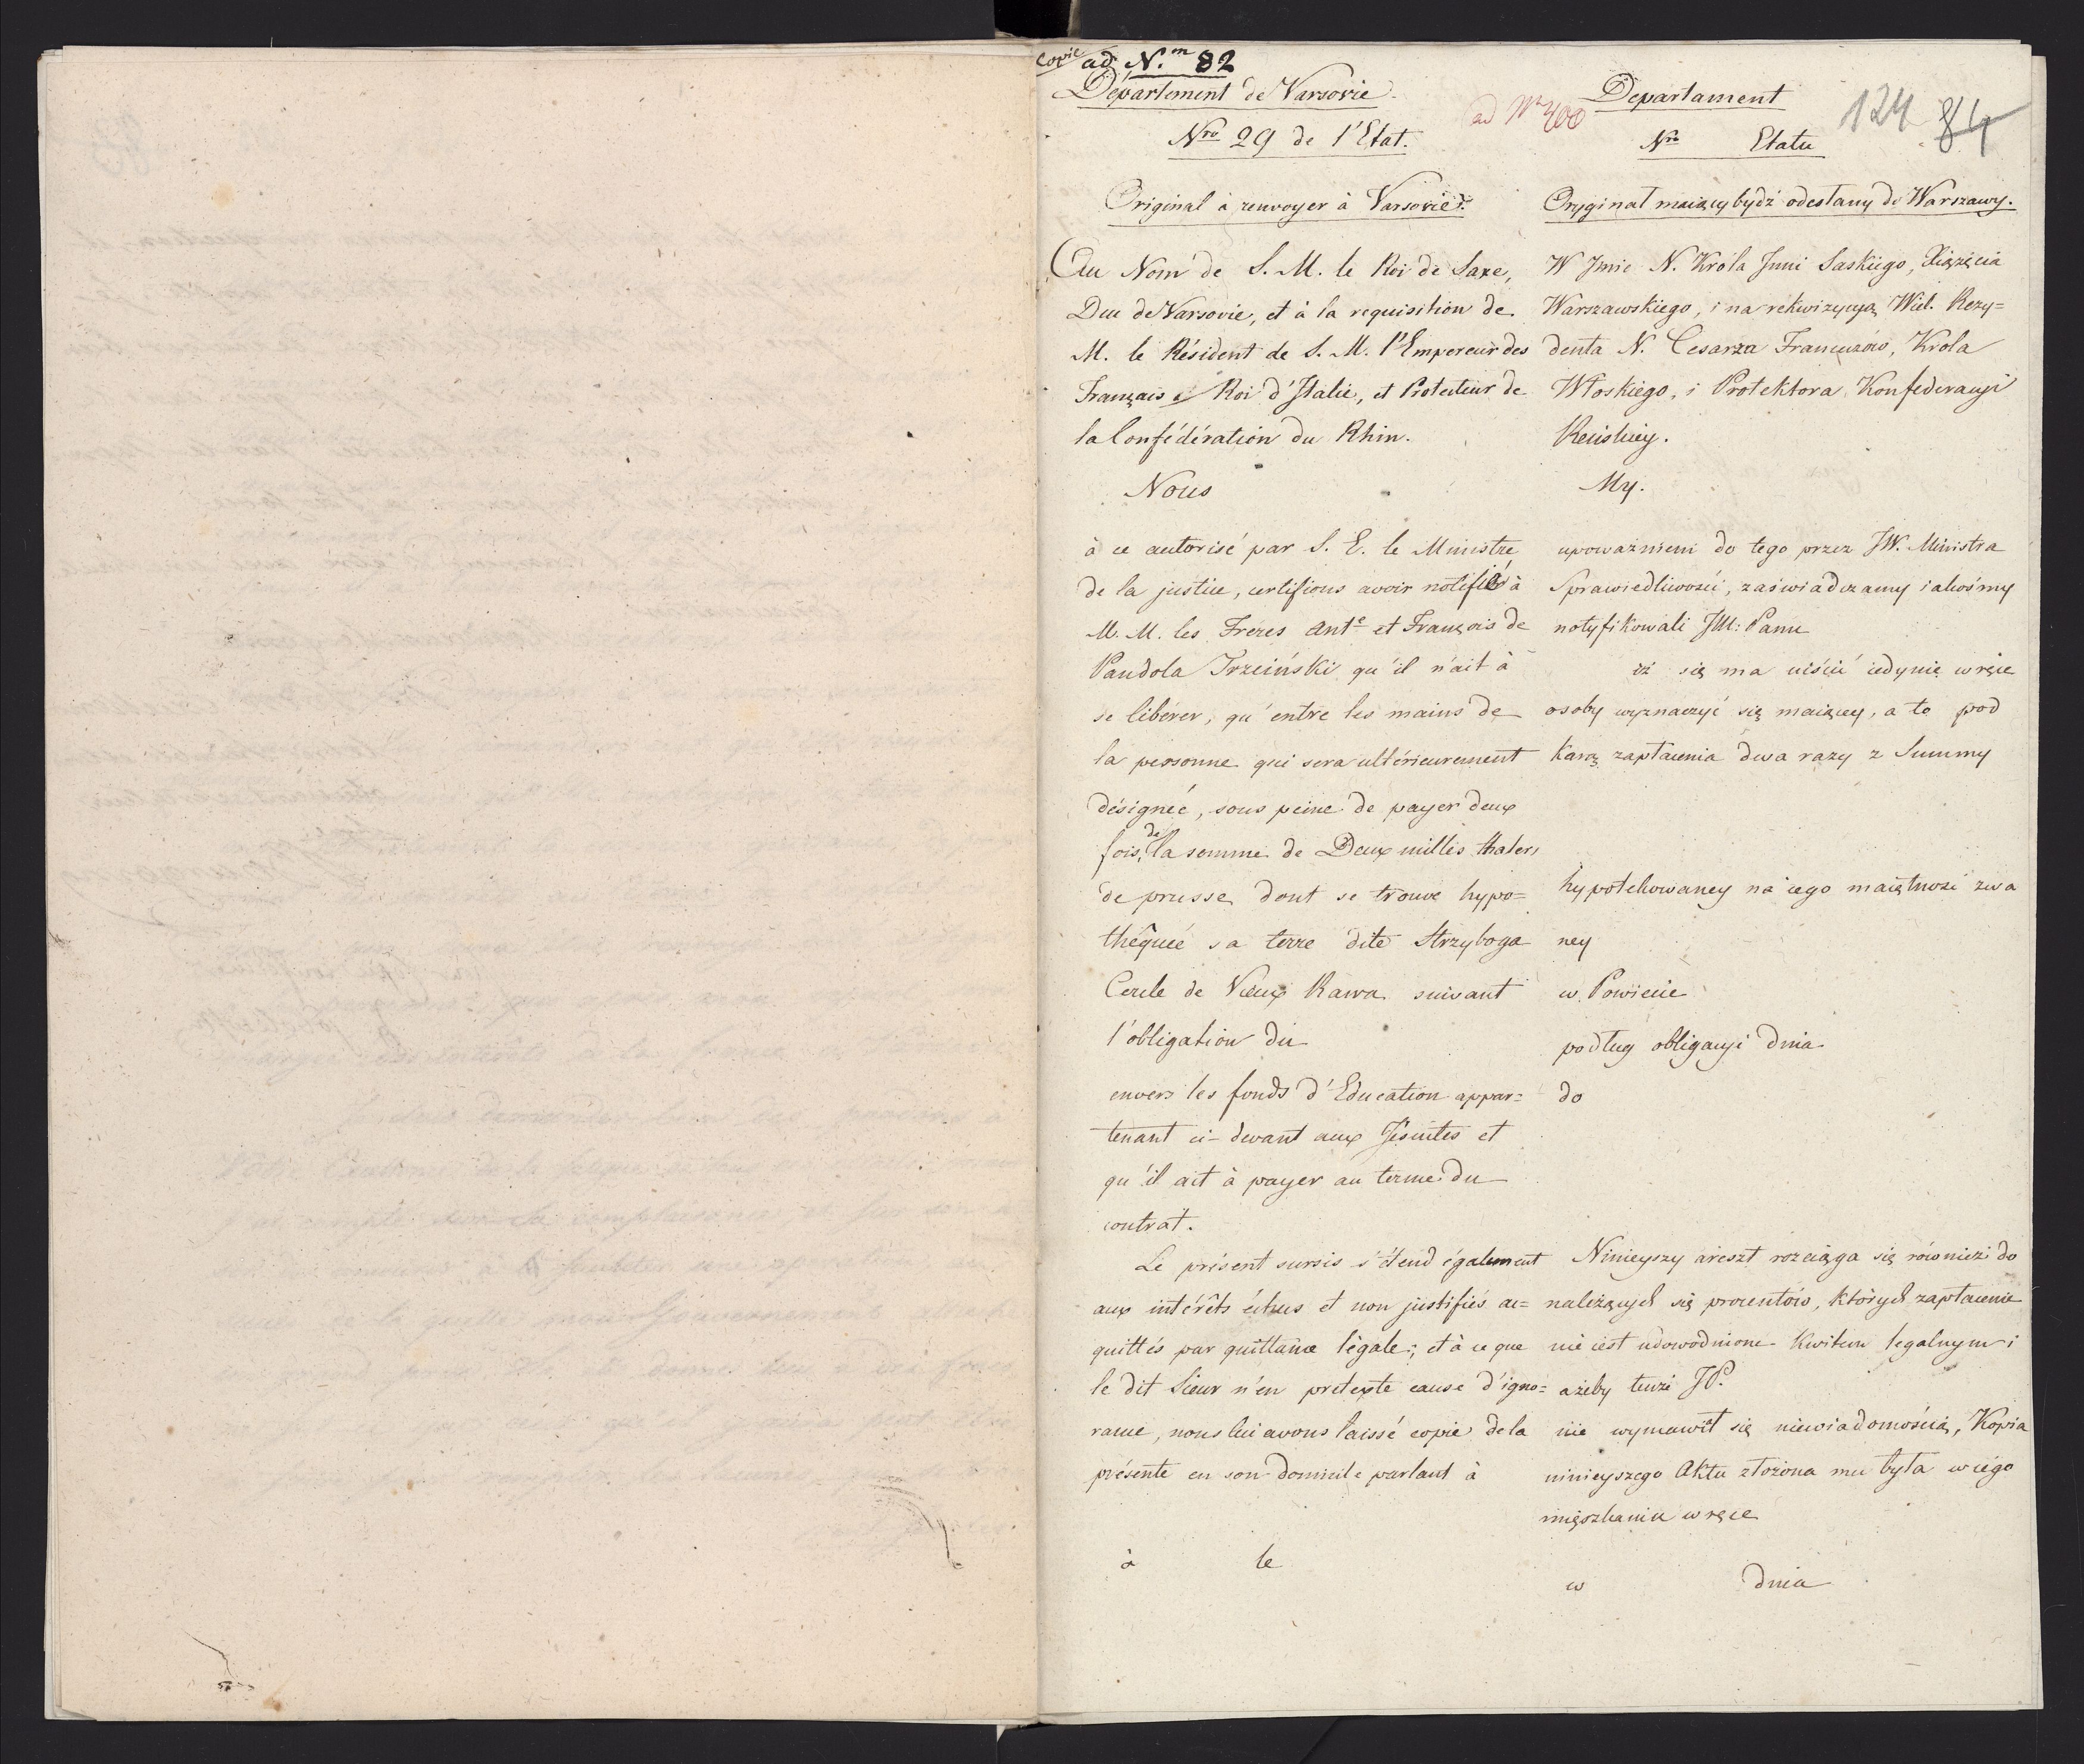 Copie ad N.m 82
Département de Varsovie.
Nro 29 de l'Etat.
Original à renvoyer à Varsovie.
Au Nom de S. M. le Roi de Saxe,
Duc de Varsovie, et à la requisition de
M. le Résident de S. M. l'Empereur des
Français Roi d'Italie, et Protecteur de
la Confédération du Rhin.
Nous
à ce autorisé par S. E. le Ministre
de la justice, certifions avoir notifié à
M. M. les Frères Ant.e et François de
Pandola Trzciński qu'il n'ait à
se libérer, qu'entre les mains de
la personne qui sera ultérieurement
désignée, sous peine de payer deux
fois, de la somme de Deux milles thalers
de prusse dont se trouve hypo=
théquée sa terre dite Strzyboga
Cercle de Vieux Rawa suivant
l'obligation du
envers les fonds d'Education appar=
tenant ci-devant aux Jésuites et
qu'il ait à payer au terme du
contrat.
Le présent sursis s'étend également
aux intérêts échus et non justifiés ac=
quittés par quittance légale; et à ce que
le dit Sieur n'en pretexte cause d'igno=
rance, nous lui avons laissé copie de la
présente en son domicile parlant à
à le
ad Nr 400
Departament
124 84
Nro Etatu
Oryginał maiący bydź odesłany do Warszawy.
W Jmie N. Króla Jmci Saskiego, Xiążęcia
Warszawskiego, i na rekwizycyą Wiel. Rezy=
denta N. Cesarza Francuzów, Krola
Włoskiego, i Protektora Konfederacyi
Reńskiey.
My.
upoważnieni do tego przez JW. Ministra
Sprawiedliwości, zaświadczamy iakośmy
notyfikowali JM: Panu
iż się ma uiścić iedynie w ręce
osoby wyznaczyć się maiącey, a to pod
karą zapłacenia dwa razy z Summy
hypotekowaney na iego maiętnosi zwa
ney
w Powiecie
podług obligacyi dnia
do
Ninieyszy areszt rozciąga się równiez do
należących się procentów, których zapłacenie
nie iest udowodnione Kwitem legalnym i
ażeby tenże JP.
nie wymawiał się niewiadomością, Kopia
ninieyszego Aktu złożona mu była w iego
mięszkaniu w ręce
w dnia